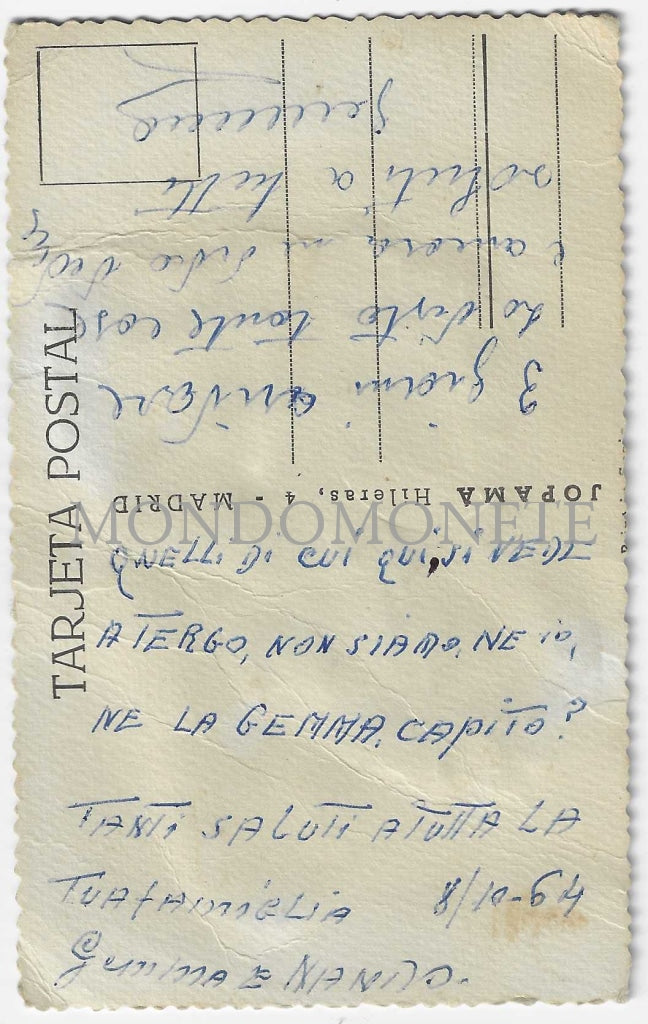 QUELLI DI CUI QUI SI VEDE
A TERGO, NON SIAMO, NE IO,
NE LA GEMMA, CAPITO?
TANTI SALUTI A TUTTA LA
TUA FAMIGLIA 8/10-64
Gemma E NANDO.
3 giorni
Ho visto tante cose
e ancora
saluti a tutti
Gemma
TARJETA POSTAL
JOPAMA Hileras, 4 - MADRID
MONDOMONETE